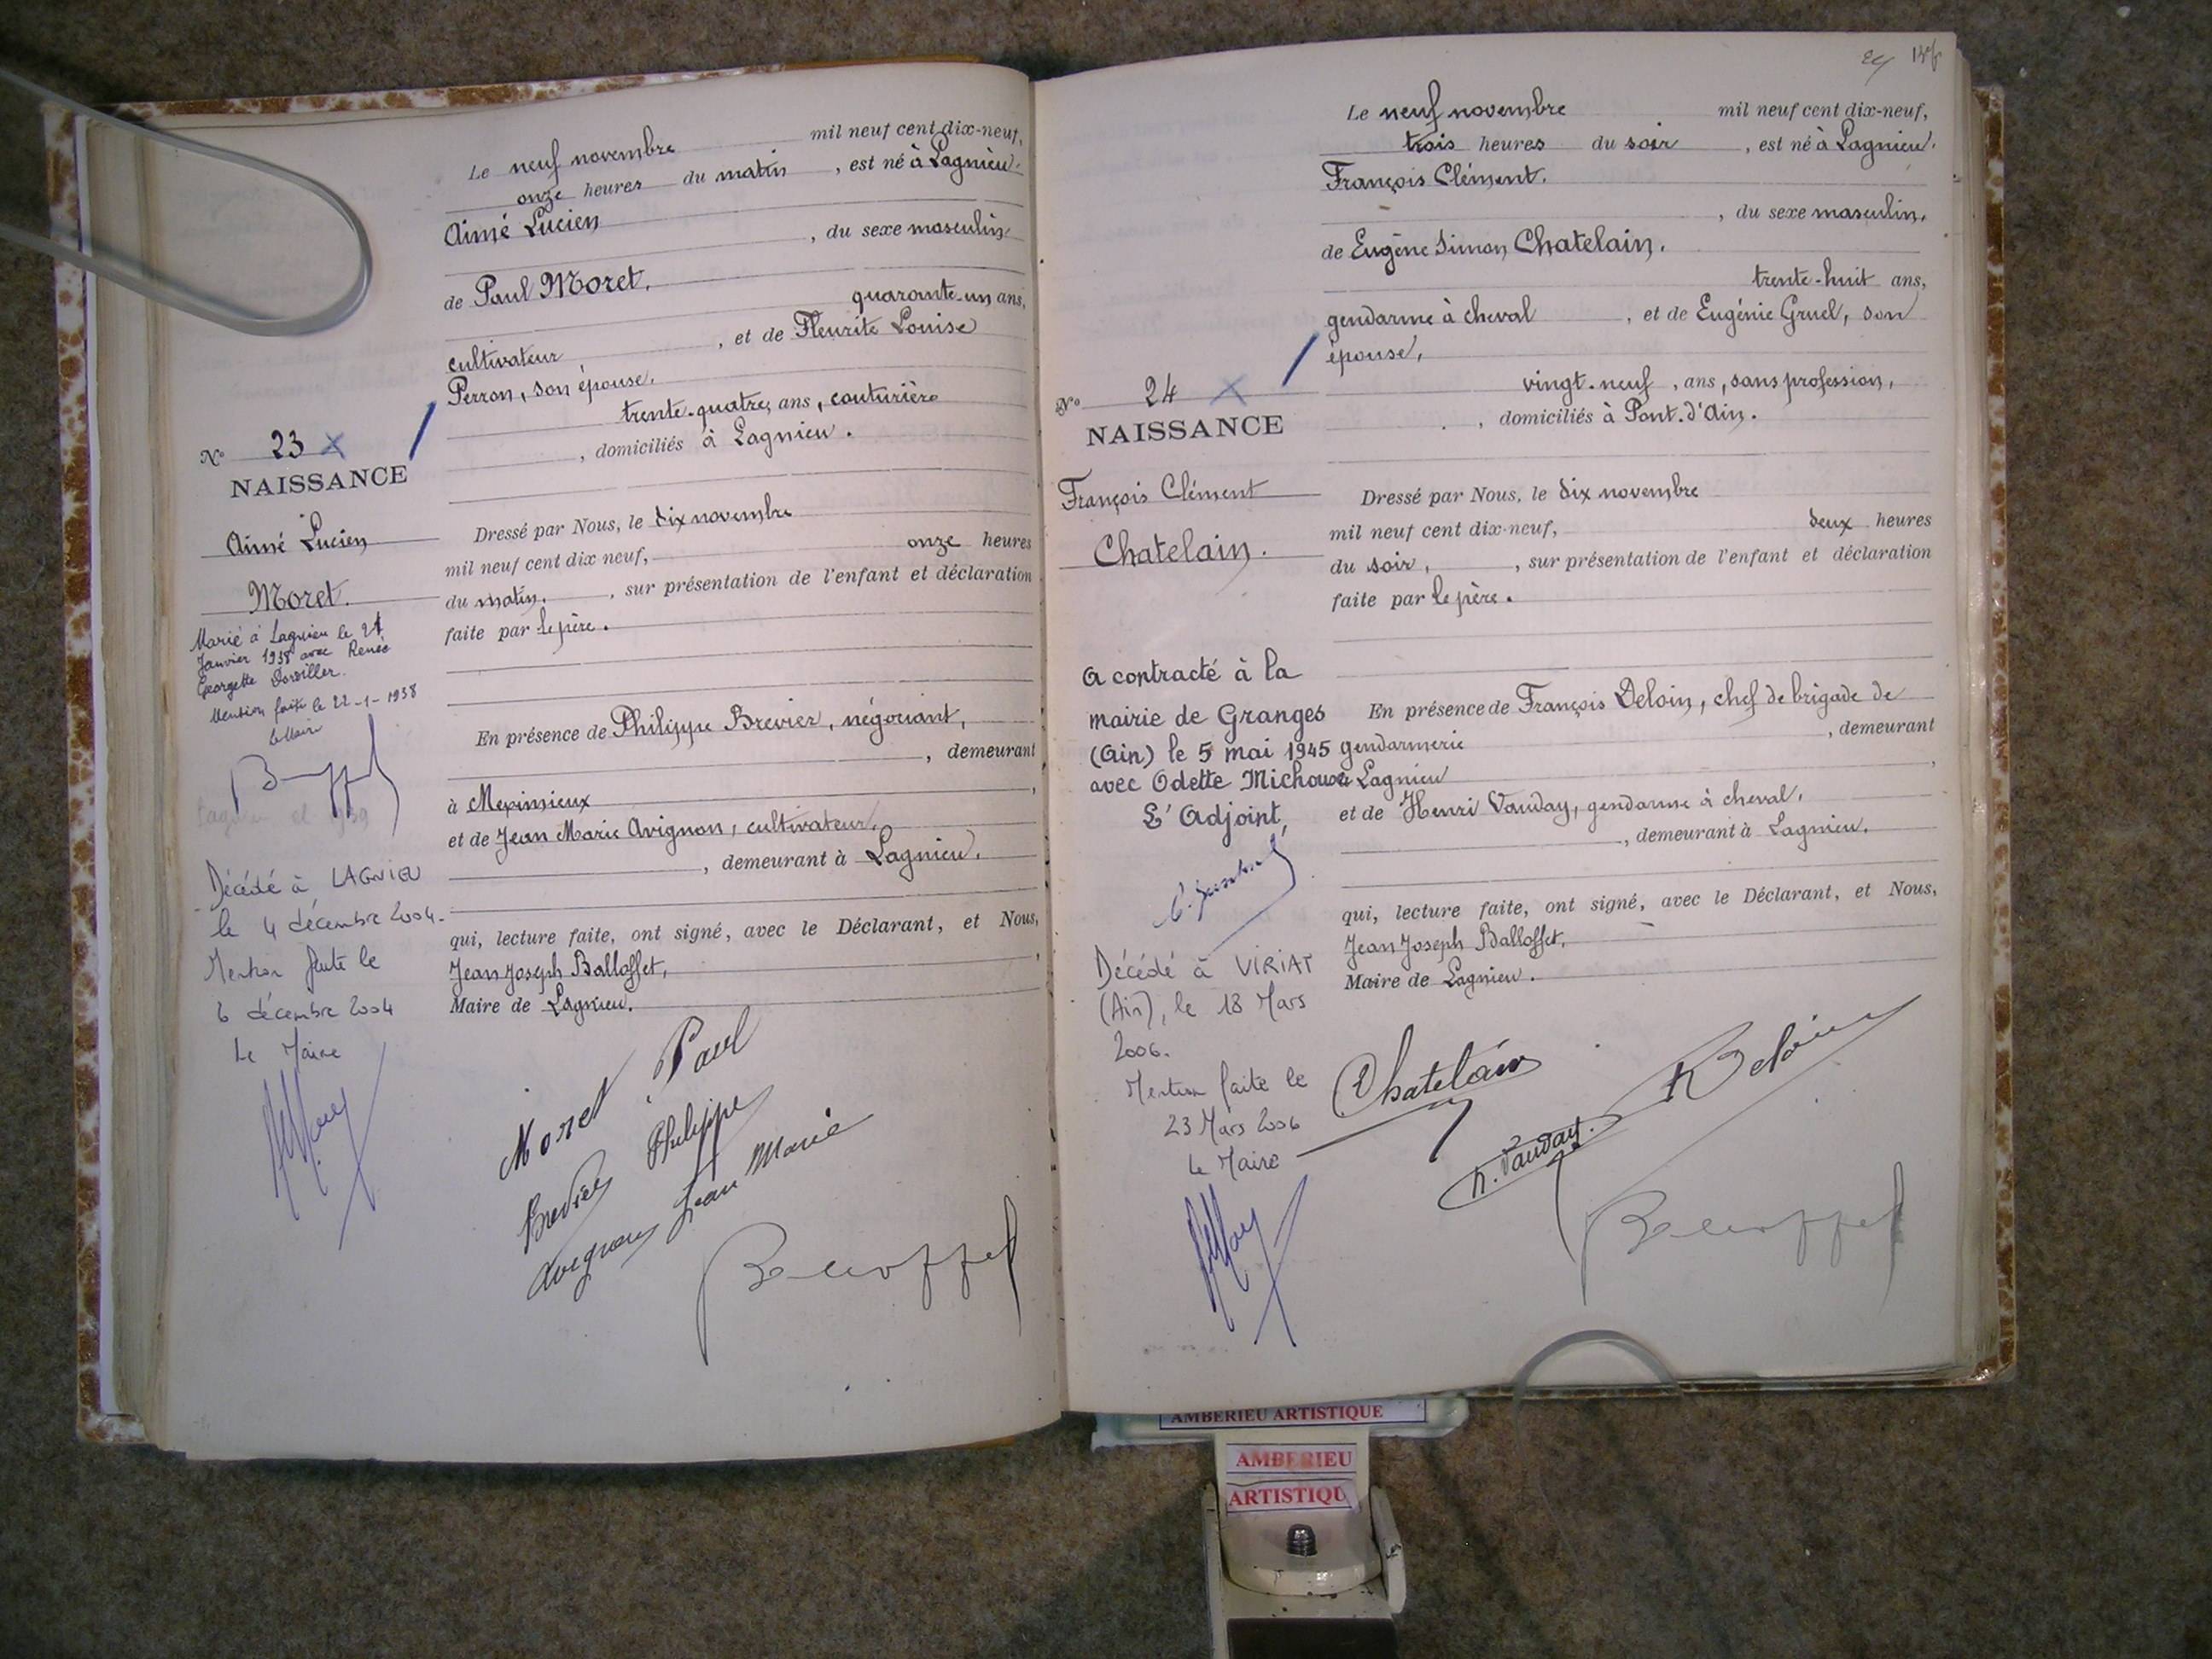 Le neuf novembre mil neuf cent dix-neuf,
onze heures du matin, est né à Lagnieu.
Aimé Lucien
, du sexe masculin
de Paul Moret,
quarante-un ans,
cultivateur, et de Fleurite Louise
Perron, son épouse,
trente-quatre ans, couturière
, domiciliés à Lagnieu.
N° 23
NAISSANCE
Aimé Lucien
Moret.
Dressé par Nous, le dix novembre
mil neuf cent dix neuf, onze heures
du matin, sur présentation de l'enfant et déclaration
faite par le père.
Marié à Lagnieu le
Janvier 1938 avec Renée
Georgette
Mention faite le 22-1-1938
Le Maire
En présence de Philippe Brevier, négociant,
, demeurant
à Meximieux,
et de Jean Marie Avignon, cultivateur,
, demeurant à Lagnieu.
qui, lecture faite, ont signé, avec le Déclarant, et Nous,
Jean Joseph Balloffet,
Maire de Lagnieu.
Décédé à LAGNIEU
le 4 décembre 2004.
Mention faite le
6 décembre 2004
Le Maire
Moret Paul
Brevier Philippe
Avignon Jean Marie
Balloffet
24
Le neuf novembre mil neuf cent dix-neuf,
trois heures du soir, est né à Lagnieu.
François Clément.
, du sexe masculin,
de Eugène Simon Chatelain.
trente-huit ans,
gendarme à cheval, et de Eugénie Gruel, son
épouse,
vingt-neuf, ans, sans profession,
, domiciliés à Pont-d'Ain.
N° 24
NAISSANCE
François Clément
Chatelain.
Dressé par Nous, le dix novembre
mil neuf cent dix-neuf, deux heures
du soir, , sur présentation de l'enfant et déclaration
faite par le père.
A contracté à la
mairie de Granges
(Ain) le 5 mai 1945
avec Odette
L'Adjoint,
En présence de François Deloin, chef de brigade de
gendarmerie, demeurant
à Lagnieu,
et de Henri Vauday, gendarme à cheval,
, demeurant à Lagnieu.
qui, lecture faite, ont signé, avec le Déclarant, et Nous,
Jean Joseph Balloffet,
Maire de Lagnieu.
Décédé à VIRIAT
(Ain), le 18 Mars
2006.
Mention faite le
23 Mars 2006
Le Maire
Chatelain
Deloin
h. Vauday.
Balloffet
AMBERIEU ARTISTIQUE
AMBERIEU
ARTISTIQU